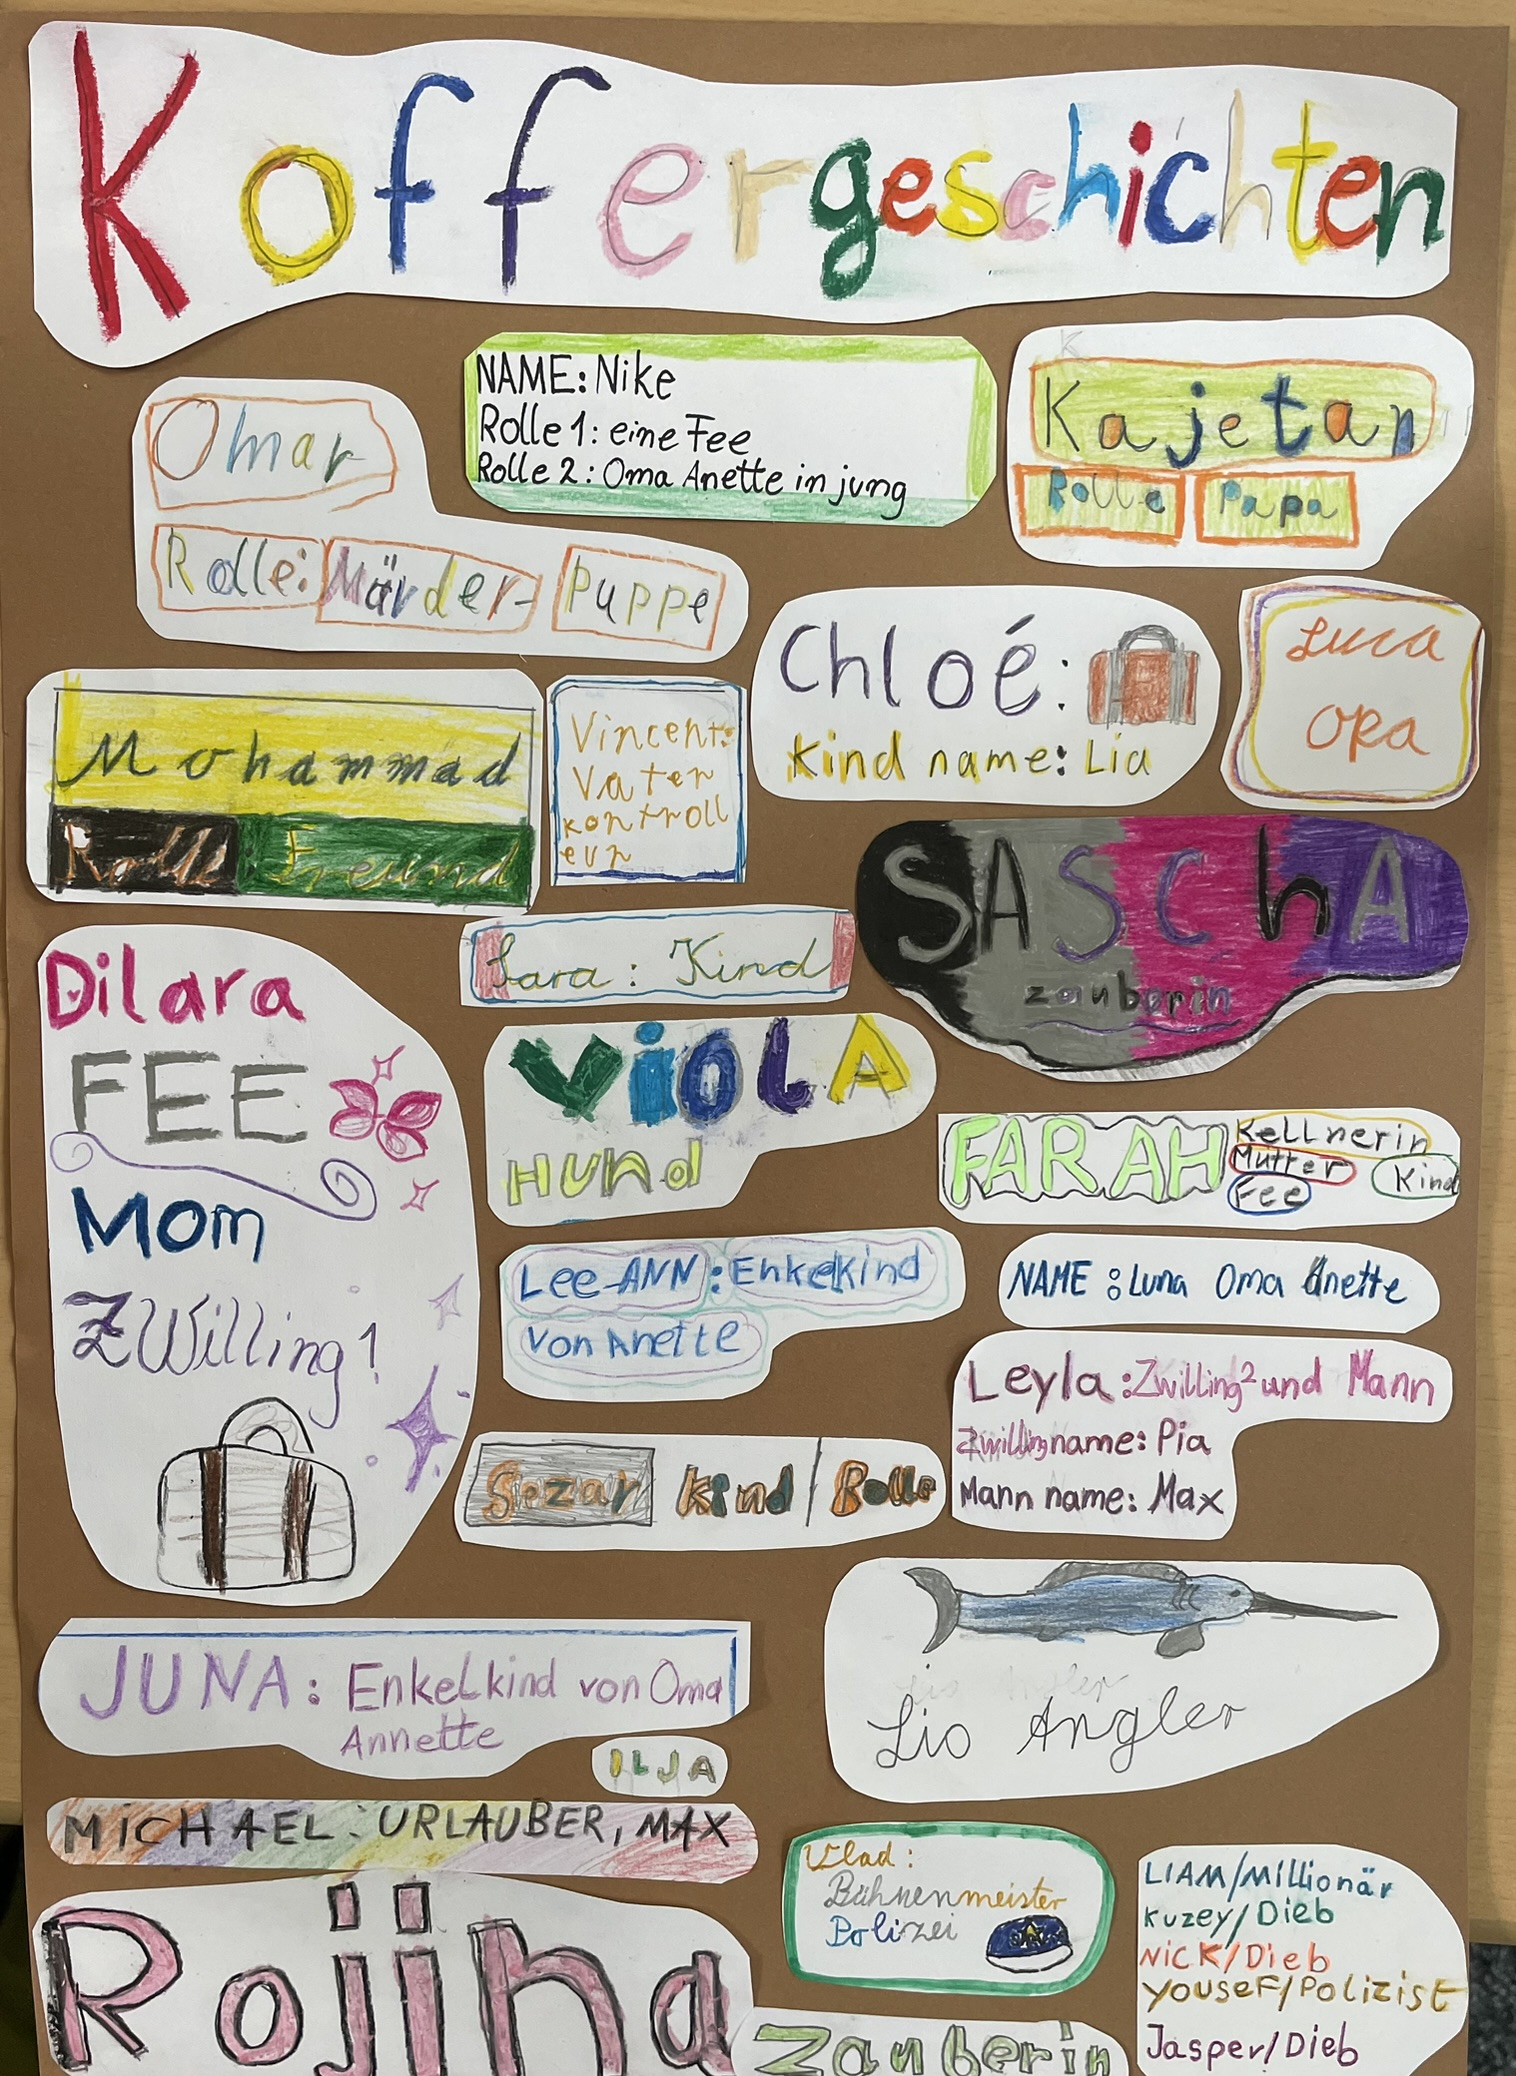 Koffergeschichten
NAME: Nike
Rolle 1: eine Fee
Rolle 2: Oma Anette in jung
Kajetan
Rolle Papa
Omar
Rolle: Märder-Puppe
Chloé:
Kind name: Lia
Luca
OPa
Mohammad
Rolle: Freund
Vincent:
Vater
kontroll
eur
SASCHA
zauberin
Sara: Kind
Dilara
FEE
MOM
ZWilling 1
ViOLA
HUnd
FARAH
Kellnerin
Mutter
Kind
Fee
Lee-ANN: Enkelkind
von Anette
NAME: Luna Oma Anette
Leyla: Zwilling 2 und Mann
Zwillingname: Pia
Mann name: Max
Sezar Kind / Rolle
Lio Angler
JUNA: Enkelkind von Oma
Annette
ILJA
MiCHAEL: URLAUBER, MAX
Vlad:
Bühnenmeister
Polizei
LIAM/Millionär
Kuzey/Dieb
NiCK/Dieb
YouseF/Polizist
Jasper/Dieb
Rojina
Zauberin